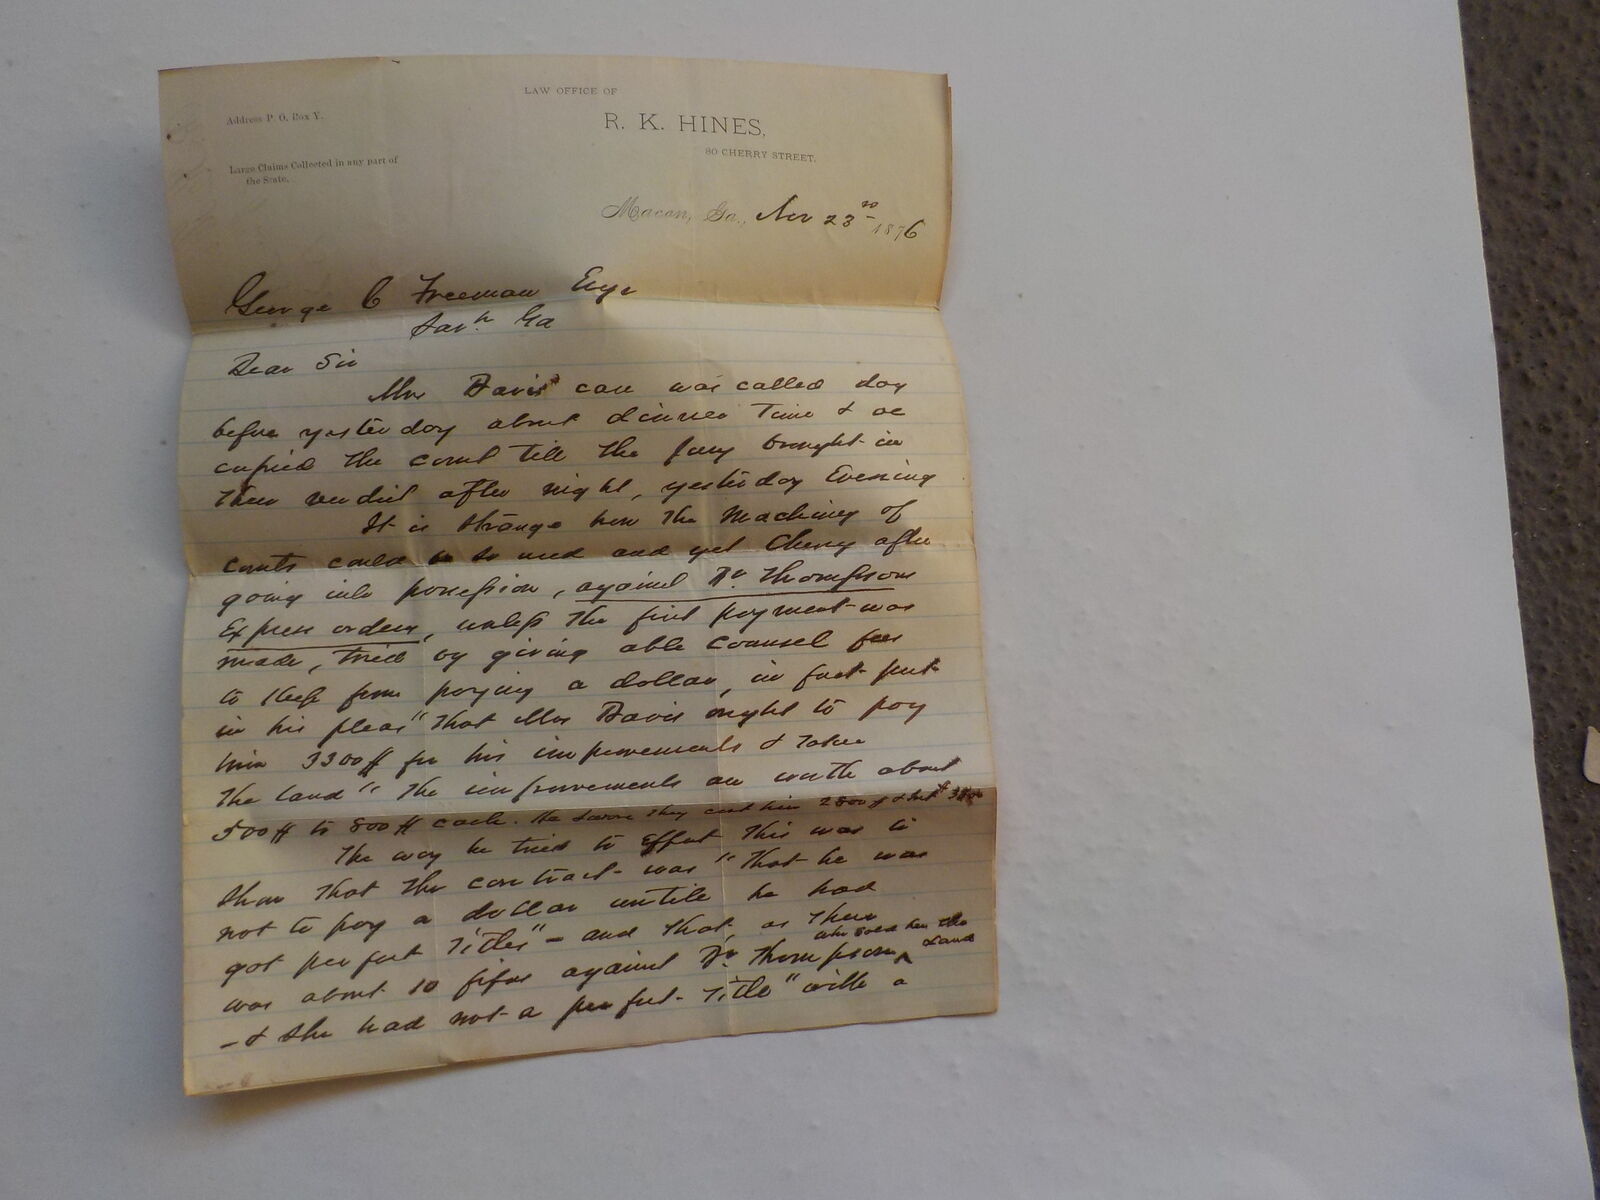 LAW OFFICE OF
R. K. HINES,
80 CHERRY STREET.
Address P. O. Box Y.
Large Claims Collected in any part of
the State.
Macon, Ga., Nov 23rd 1876
George C Freeman Esqr
Savh Ga
Dear Sir
Mrs Davis' case was called day
before yesterday about dinner time & oc
cupied the court till the jury brought in
their verdict after night, yesterday Evening
It is strange how the machinery of
courts could be so used and yet Cherry after
going into possession, against Dr. Thompsons
Express orders, unless the first payment was
made, tried by giving able counsel fees
to keep from paying a dollar, in fact put
in his pleas "that Mrs Davis ought to pay
him 3300 for his improvements & take
the land" the improvements are worth about
500 to 800 cash. He swore they cost him 2800
The way he tried to effect this was to
show that the contract was "that he was
not to pay a dollar untile he had
got perfect Titles" - and that, as there
was about 10 fifas against Dr. Thompson who sold her the land
- & she had not a perfect Title" with a